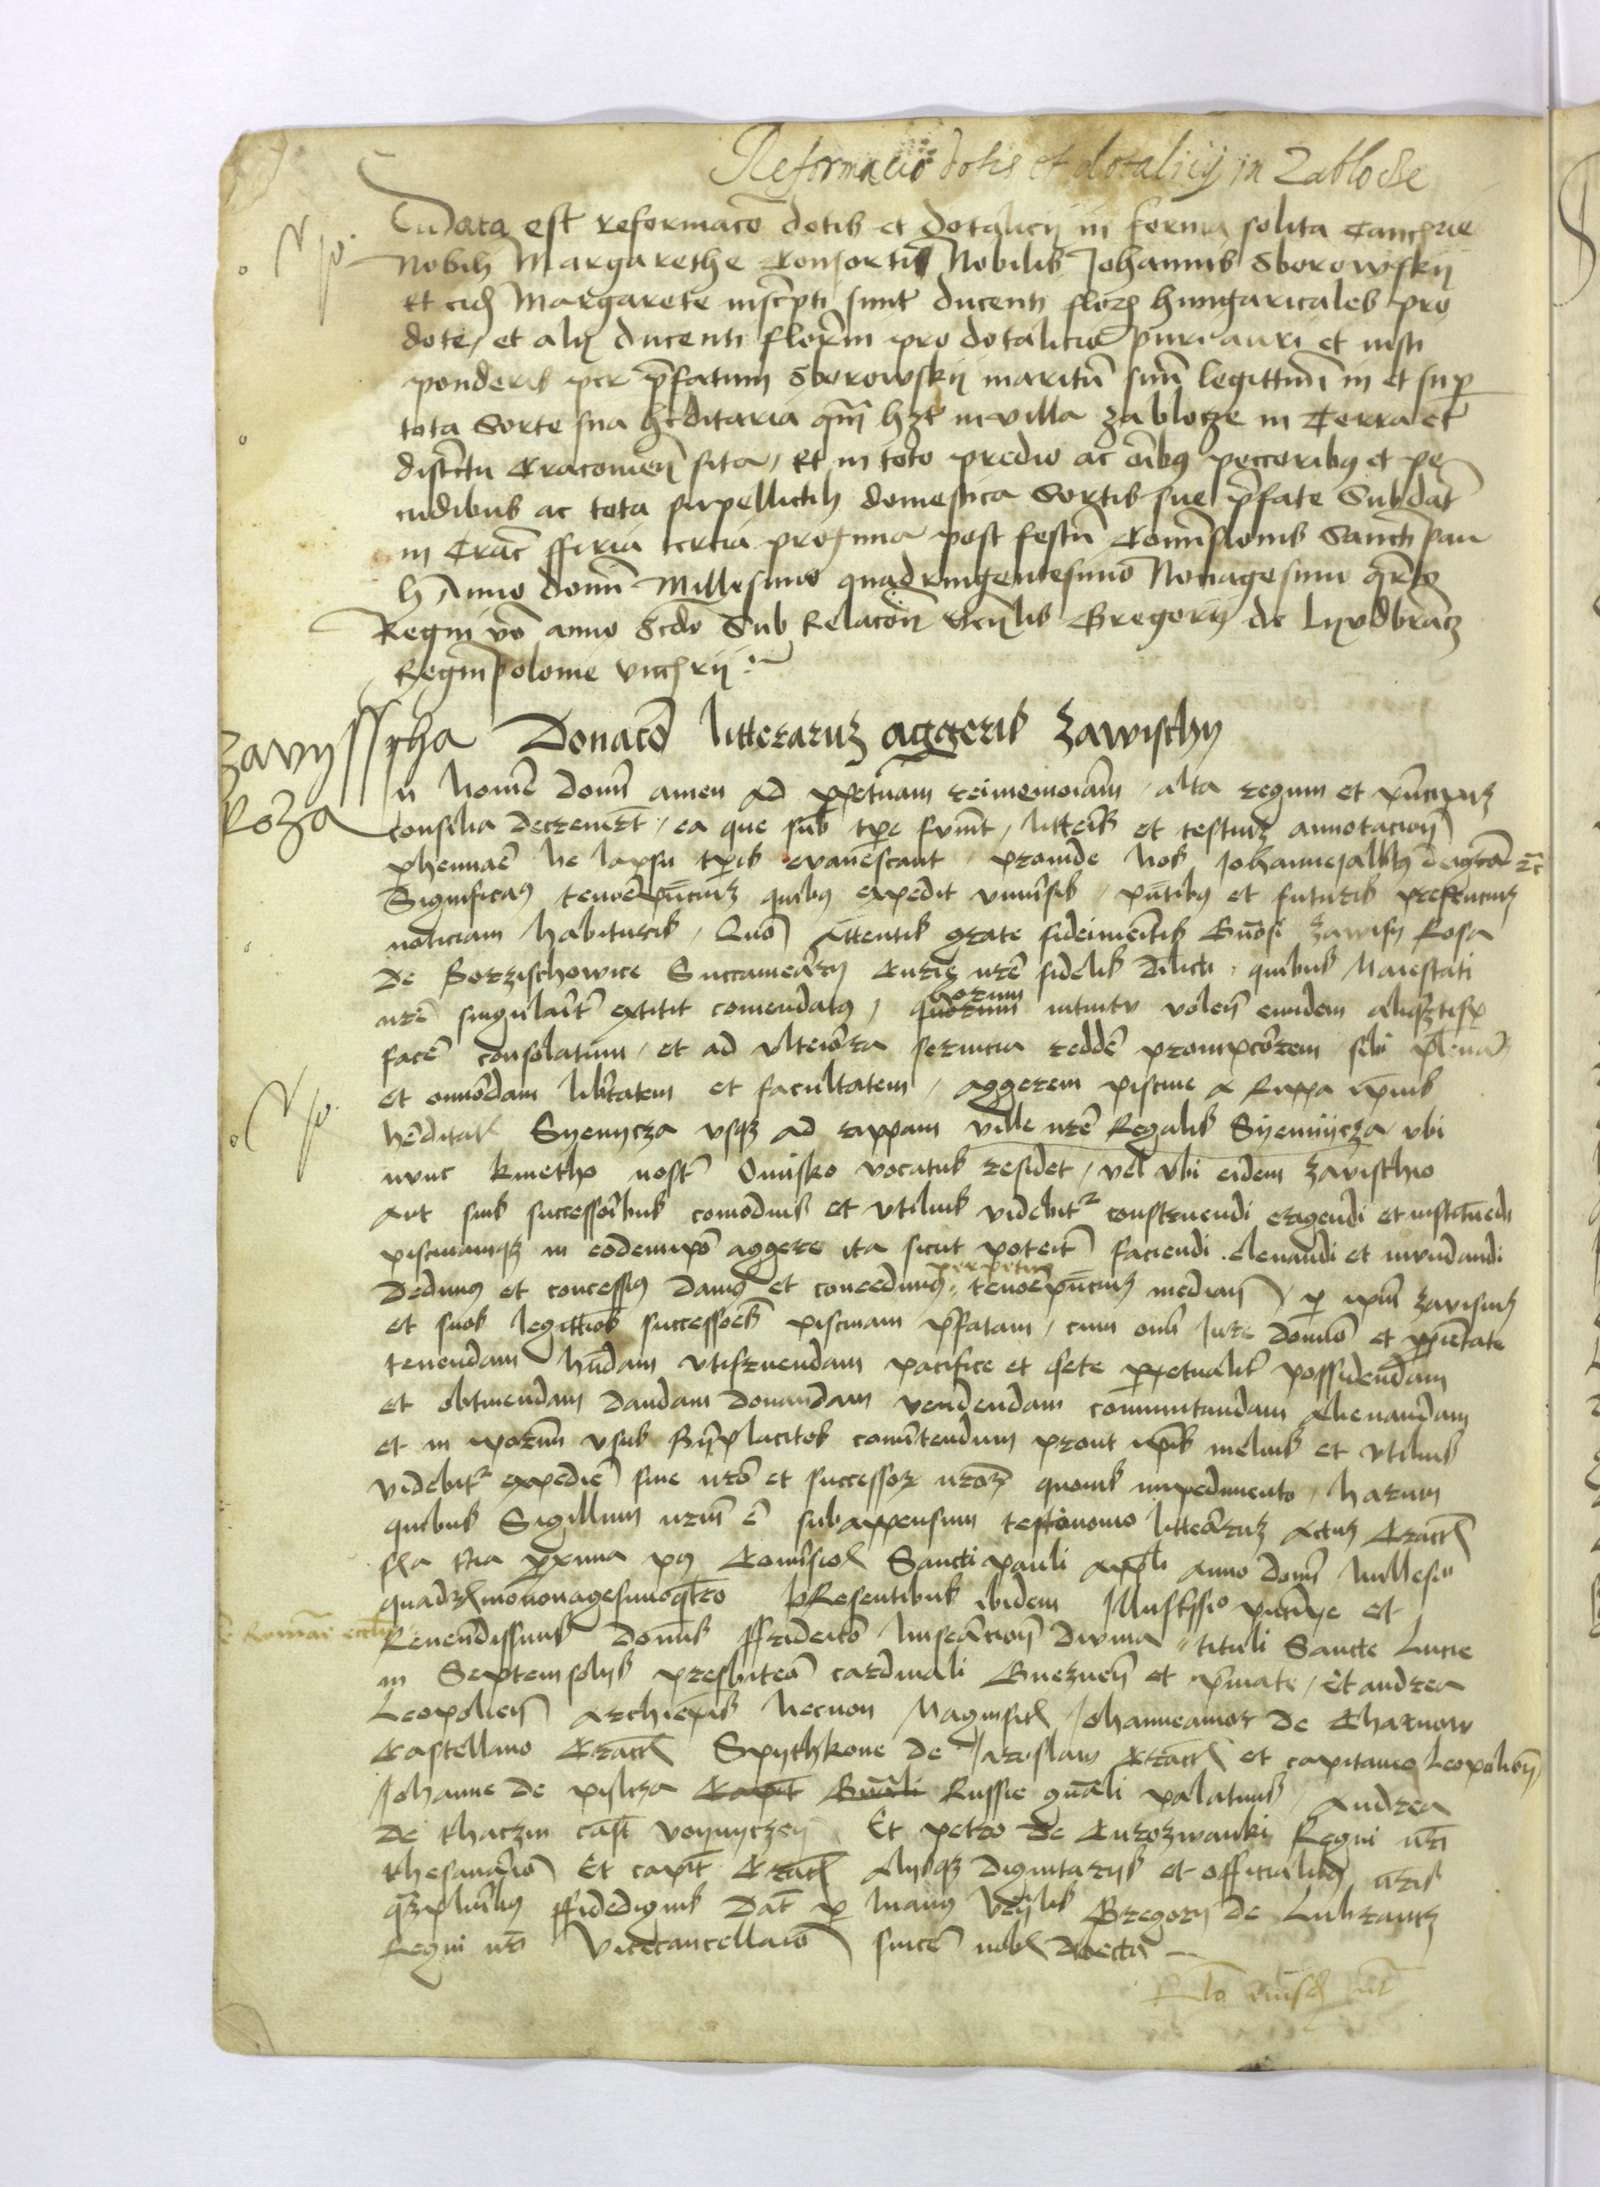 Reformacio dotis et dotalicij in Zablocze
data est reformaco dotis et dotalicii in forma solita Canc
Nobili Margarethe Consortis Nobilis Johannis Sborowskij
Et eid Margarete inscripti sunt ducenti floren hungaricales pro
dote, et alij ducenti floren pro dotalicio puri auri et iusti
ponderis per prefatum Sborowskij maritum suum legittimum in et super
tota Sorte sua hereditaria quam habet in villa zablocze in Terra et
districtu Cracouien sita, Et in toto predio ac omnibus peccoribus et pe
cudibus ac tota suppellictili domestica Sortis sue prefate Sub dat
in Crac ffiria tercia proxima post festum Conuersionis Sancti pau
li Anno domini Millesimo quadringentesimo Nonagesimo quarto
Regni vero anno Scdo Sub Relacione Gregorij de Lyvdbrancz
Regni polonie vicecancrij
Zavyssha Donaco litterarum aggeris Zawischy
Roza
In nomine domini amen ad perpetuam rei memoriam, alta regum et principum
consilia decreuerunt, ea que sub tempore fiunt, litteris et testium annotacione
phennare ne lapsu temporis evanescant, proinde nos Johannes albertus dei gracia etc
Significamus tenore presencium quibus expedit vniuersis, presentibus et futuris presencium
noticiam habituris, Quomodo Attentis grate fidei meritis Generosi Zawisij Rosa
de Borzischowice Succamerarij Curie nostre fidelis dilecti, quibus Maiestati
nostre singulariter extitit comendatus, quorum horum intuitu volentes eundem aliqu
facere consolatum, et ad vlteriora seruicia reddere prompciorem, sibi plenam
et omnimodam libertatem et facultatem, aggerem piscine a rippa ipsius
hereditatis Syemycza vsque ad rippam ville nostre Regalis Syemijcza vbi
nunc kmetho noster Onisko vocatus residet, vel vbi eidem Zavischio
Aut suis successoribus comodius et vtilius videbitur construendi erigendi et instaurandi
piscinamque in eodem ipso aggere ita sicut poterit faciendi eleuandi et inundandi
Dedimus et concessimus Damus et concedimus perpetue tenore presencium mediante, per ipsum Zavisium
et suos legittimos successores piscinam prefatam, cum omni Jure dominio et proprietate
tenendam habendam vtifruendam pacifice et quiete perpetualiter possidendam
et obtinendam Dandam Donandam vendendam commutandam Alienandam
et in ipsorum vsus Beneplacitos conuertendum prout ipsis melius et vtilius
videbitur expedire sine nostro et successorum nostrorum quouis impedimento, harum
quibus Sigillum nostrum est subappensum testimonio litterarum Actum Cracouie
feria tercia proxima post Conuersionis Sancti pauli Apli anno domini Millesimo
quadringentesimo nonagesimo quarto pResentibus ibidem Illustrissimo principe et
Reuerendissimis dominis ffriderico miseracione Diuina tituli Sancte Lucie
Romane ecclie
in Septemsolijs presbitero cardinali Gneznensi et primate, Et andrea
Leopolien archiepis necnon Magnificis Johanne amor de Tharnow
Castellano Cracouien Spythkone de Jaroslaw Cracouien et capitaneo Leopolien
Johanne de pilcza Capit Gnali Russie gnali palatinis, Andrea
de thaczin cast voynyczen Et petro de Curozwanki Regni nri
thesaurario Et capit Cracouien Alijsque dignitarijs et officialibus nris
quampluribus ffidedignis Dat per manus Venlis Gregorij de Lubrancz
Regni nri Vicecancellario sincere nobis dilecti
Rlo eiusd ut